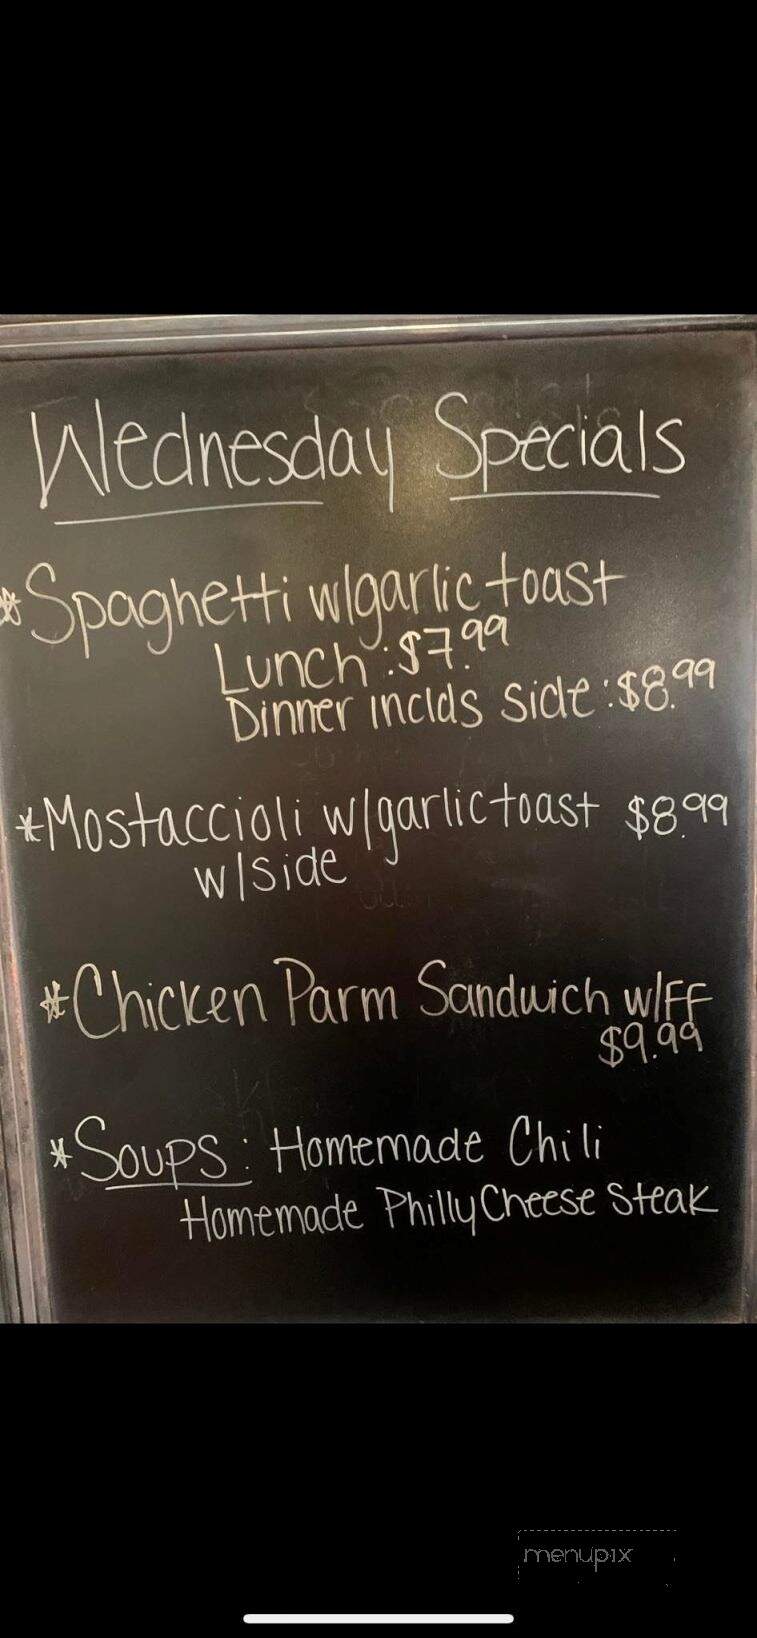 Wednesday Specials
*Spaghetti w/garlic toast
Lunch: $7.99
Dinner inclds side: $8.99
*Mostaccioli w/garlic toast $8.99
w/side
*Chicken Parm Sandwich w/FF
$9.99
*Soups: Homemade Chili
Homemade Philly Cheese Steak
menupix